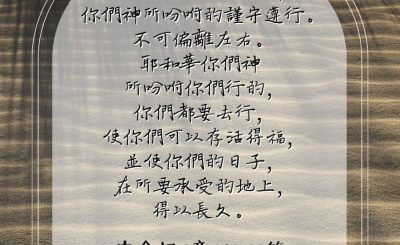 你們神所吩咐的謹守遵行。
不可偏離左右。
耶和華你們神
所吩咐你們行的,
你們都要去行,
使你們可以存活得福,
並使你們的日子,
在所要承受的地上,
得以長久。